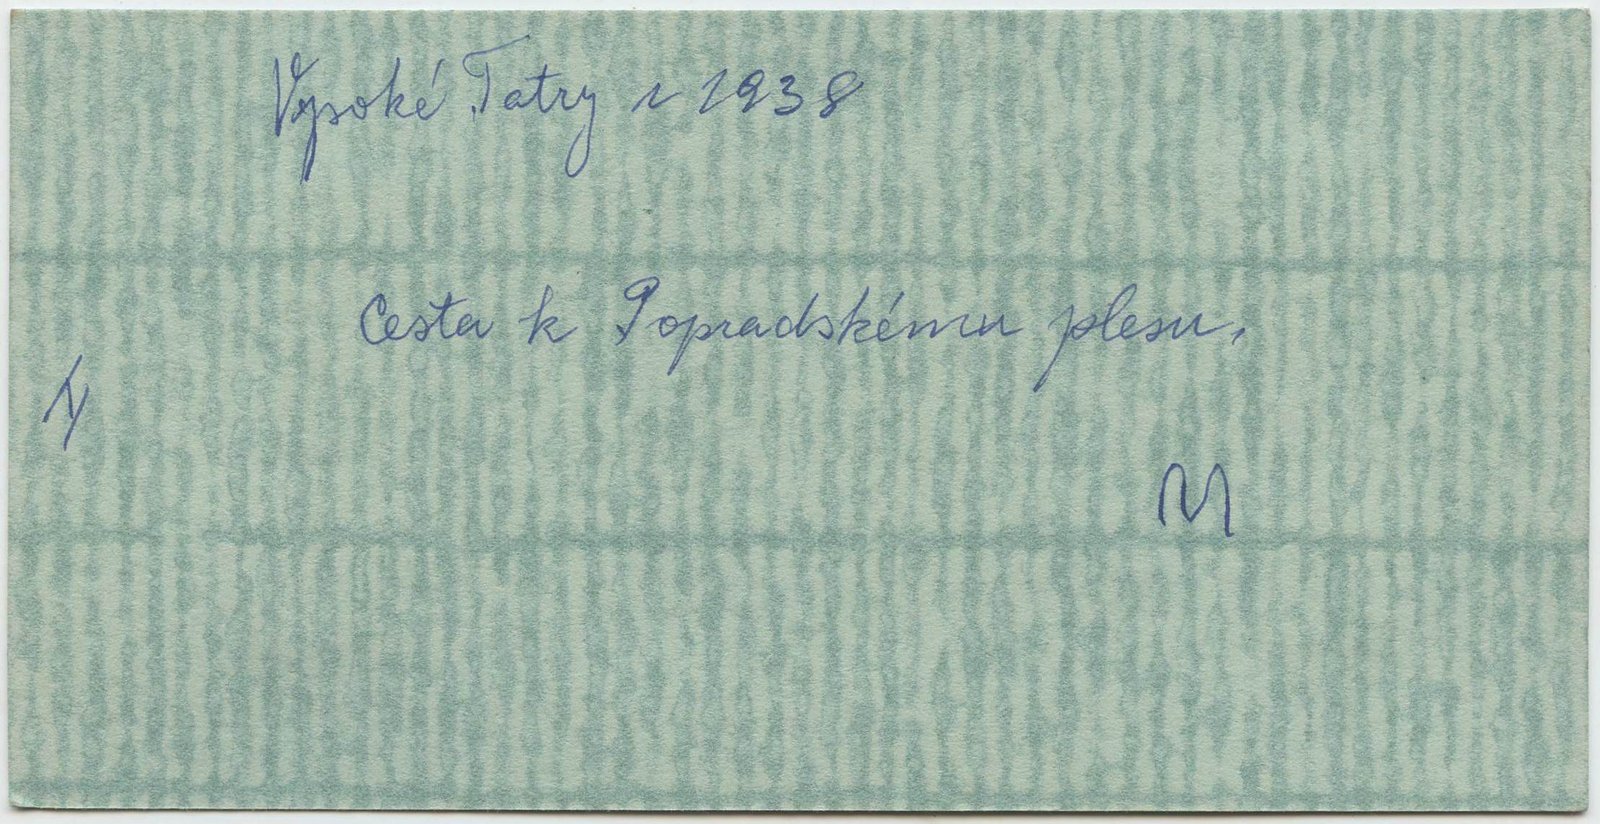 Vysoké Tatry r 1938
Cesta k Popradskému plesu.
M